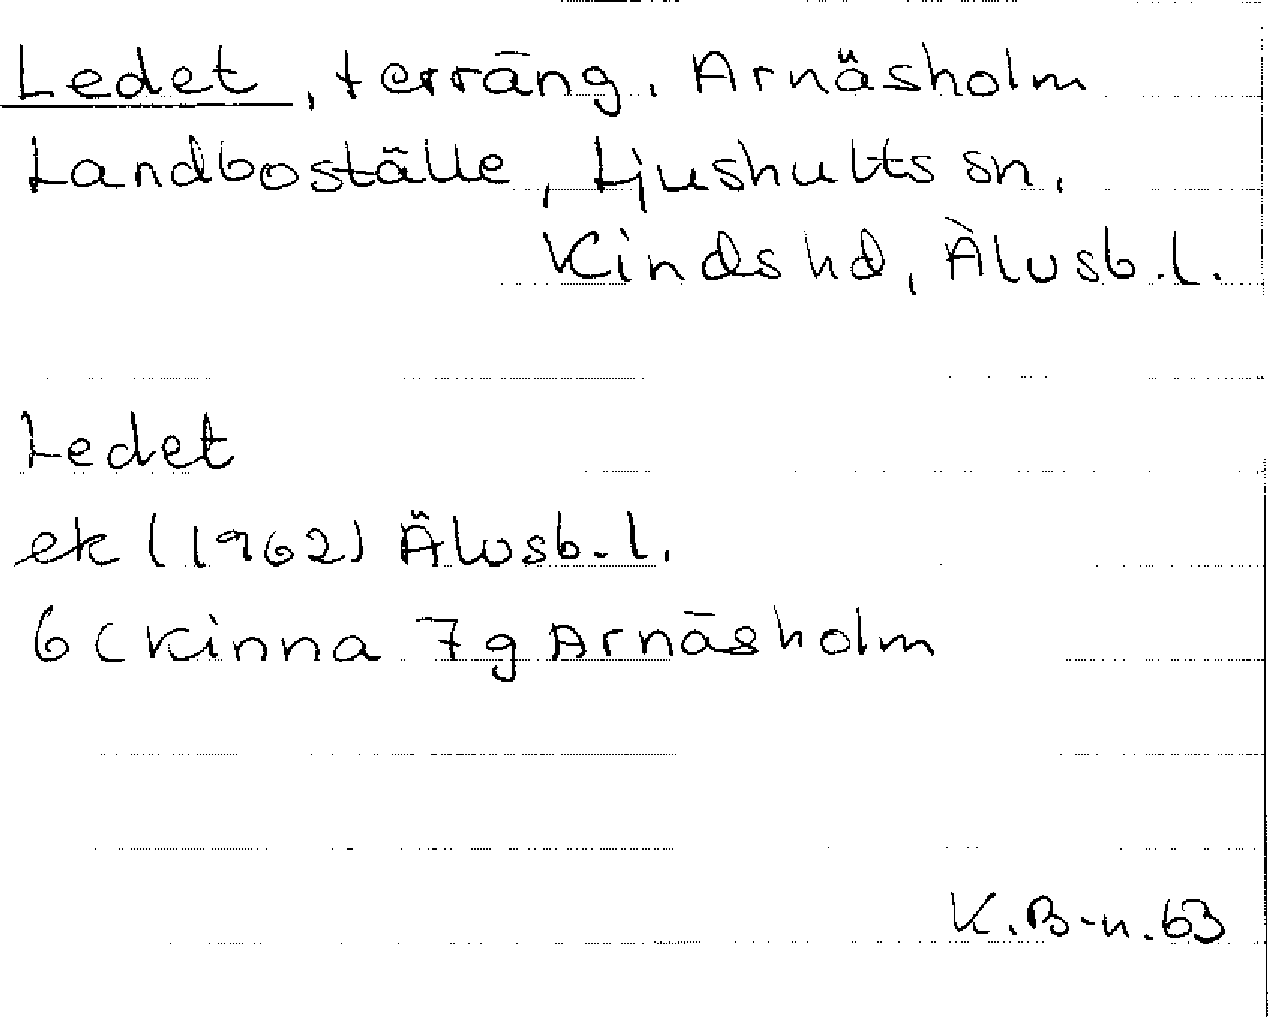 Ledet, terräng. Arnäsholm
Landboställe, Ljushults sn.
Kinds hd, Älvsb.l.
Ledet
ek (1962) Älvsb.l.
6C Kinna 7g Arnäsholm
K.B-n.63